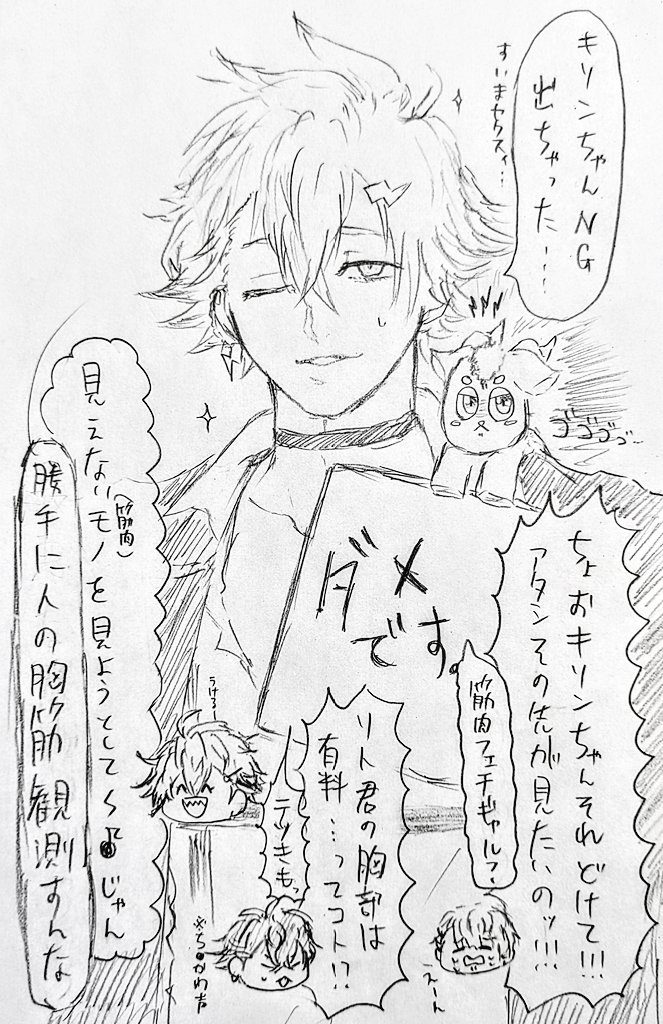 キリンちゃんNG
出ちゃった…
すいまやクスィ…
ゴゴゴゴ…
ダメ
です。
ちょおキリンちゃんそれどけて!!!
アタシその先が見たいのッ!!!
筋肉フェチギャル?
えーん
リト君の胸部は
有料…ってコト!?
※ち●かわ声
テツきもっ
うけるー
見えないモノを見ようとして〜♪じゃん
(筋肉)
勝手に人の胸筋観測すんな